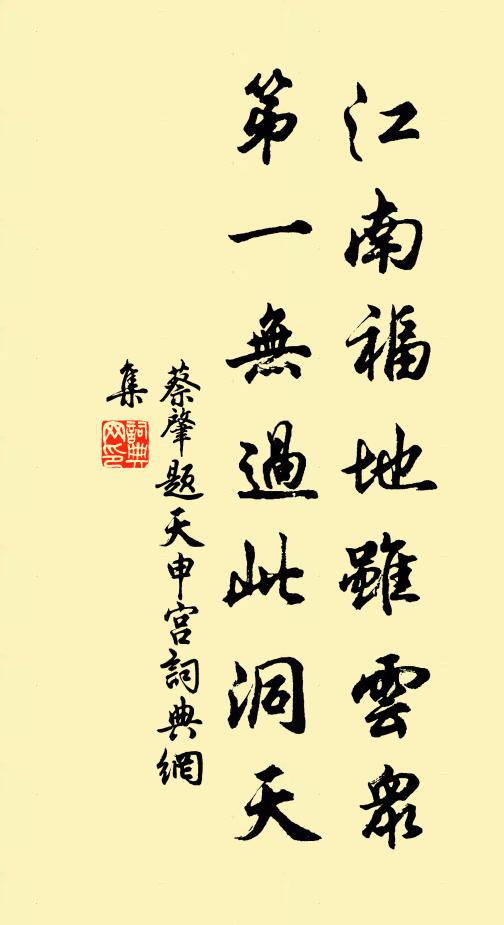 江南福地雖雲眾
第一無過此洞天
蔡肇題天申宮詞典網
集
詞典
网印